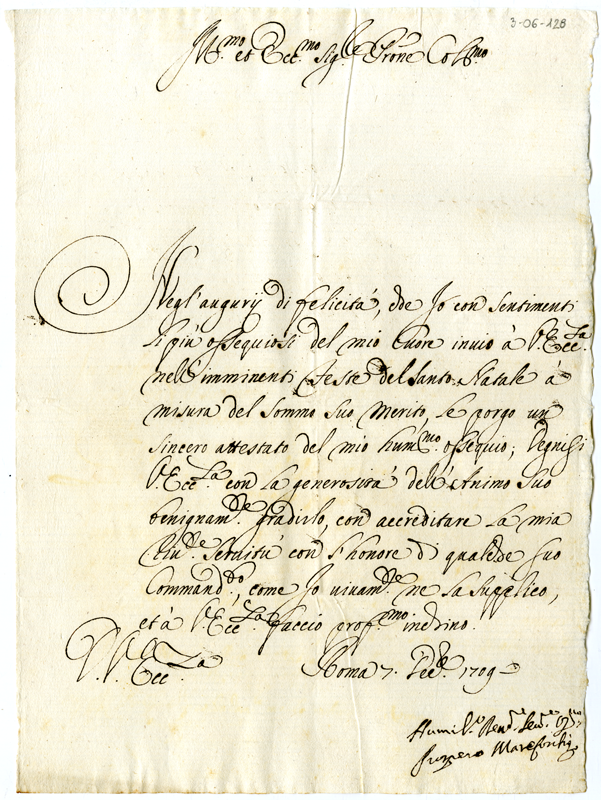 3-06-128
Ill.mo et Ecc.mo Sig.re Prone Col.mo
Negl'augurij di felicità, che Io con sentimenti
li più ossequiosi del mio Cuore invio à V. Ecc.za
nell'imminenti Feste del Santo Natale à
misura del sommo suo Merito, le porgo un
sincero attestato del mio hum.mo ossequio; Degnisi
V. Ecc.za con la generosità dell'Animo suo
benignam.te gradirlo, con accreditare la mia
servitù con l'honore di qualche suo
Command.o, come Io vivam.te ne la supplico,
et à V. Ecc.za faccio prof.mo inchino.
V. Ecc.za Roma 7. Xbre 1709
Humil.o Dev.
Marefoschi